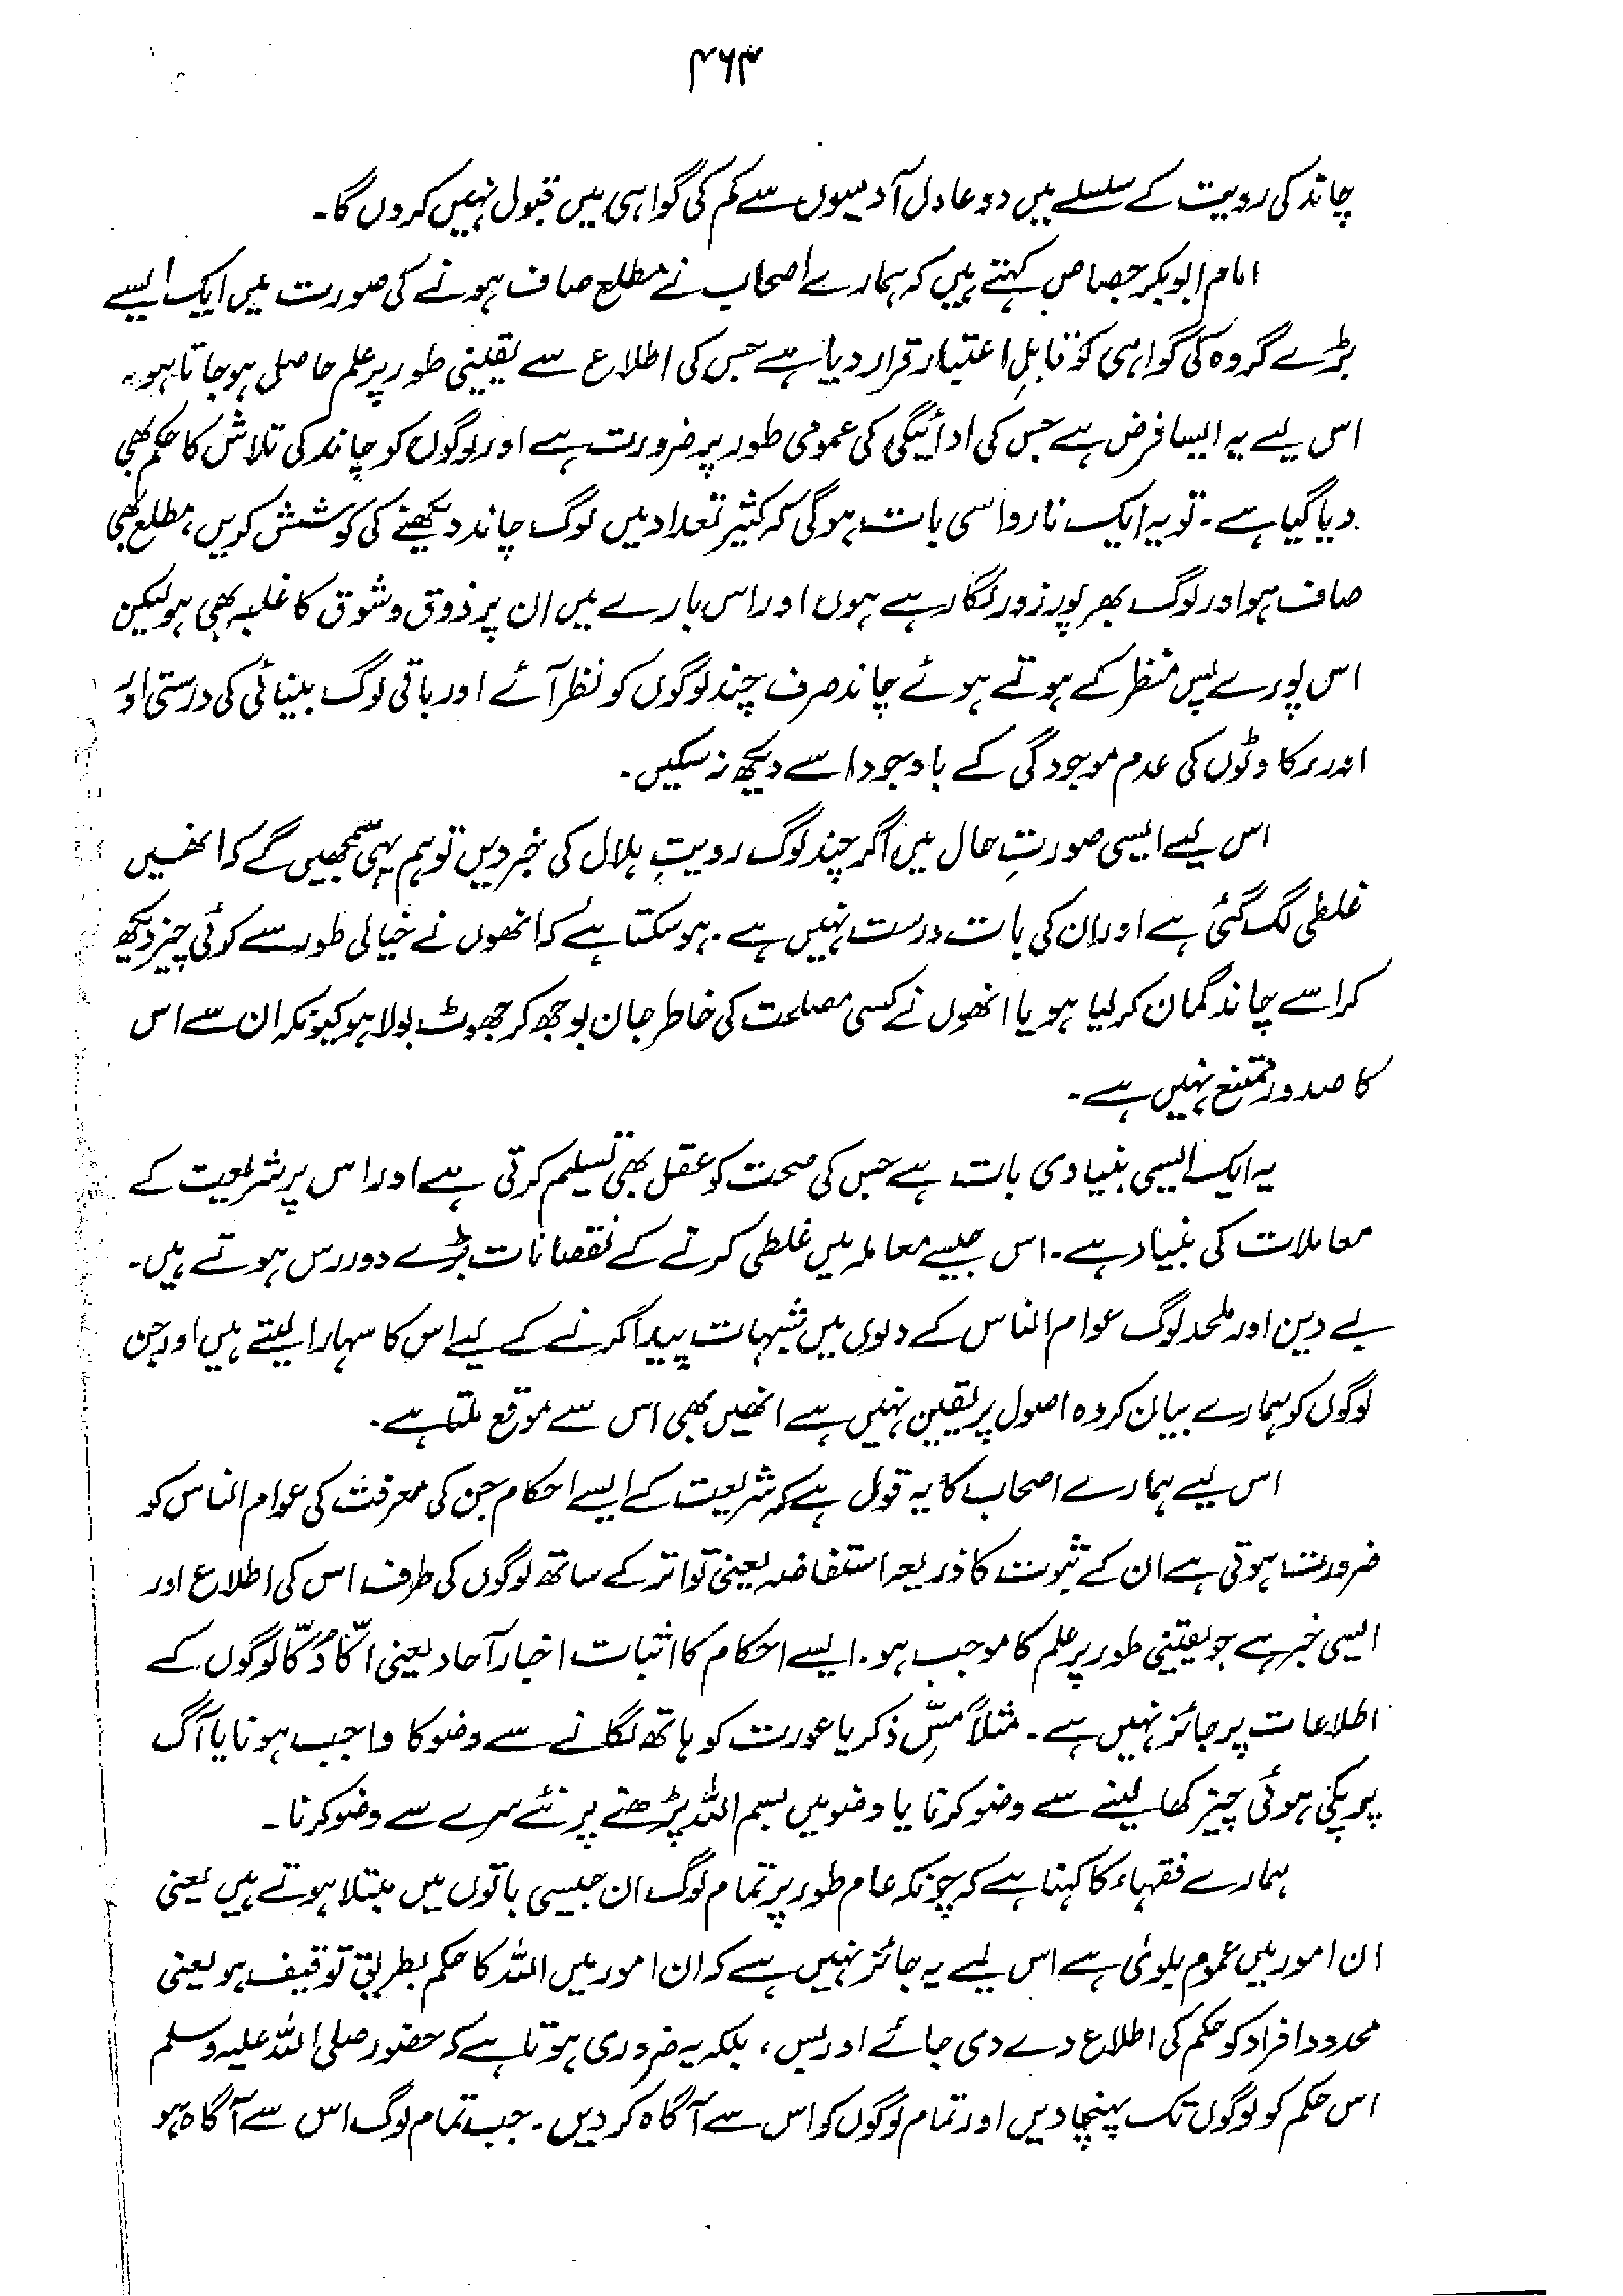 ۴۶۳
چاند کی رویت کے سلسلے میں دو عادل آدمیوں سے کم کی گواہی میں قبول نہیں کروں گا۔
امام ابوبکر جصاص کہتے ہیں کہ ہمارے اصحاب نے مطلع صاف ہونے کی صورت میں ایک ایسے
بڑے گروہ کی گواہی کو قابلِ اعتبار قرار دیا ہے جس کی اطلاع سے یقینی طور پر علم حاصل ہو جاتا ہو۔
اس لیے یہ ایسا فرض ہے جس کی ادائیگی کی عمومی طور پر ضرورت ہے اور لوگوں کو چاند کی تلاش کا حکم بھی
دیا گیا ہے۔ تو یہ ایک ناروا سی بات ہوگی کہ کثیر تعداد میں لوگ چاند دیکھنے کی کوشش کریں، مطلع بھی
صاف ہو اور لوگ بھرپور زور لگا رہے ہوں اور اس بارے میں ان پر ذوق و شوق کا غلبہ بھی ہو لیکن
اس پورے پس منظر کے ہوتے ہوئے چاند صرف چند لوگوں کو نظر آئے اور باقی لوگ بینائی کی درستی اور
اور رکاوٹوں کی عدم موجودگی کے باوجود اسے دیکھ نہ سکیں۔
اس لیے ایسی صورتِ حال میں اگر چند لوگ رویتِ ہلال کی خبر دیں تو ہم یہی سمجھیں گے کہ انھیں
غلطی لگ گئی ہے اور ان کی بات درست نہیں ہے۔ ہو سکتا ہے کہ انھوں نے خیالی طور سے کوئی چیز دیکھ
کر اسے چاند گمان کر لیا ہو یا انھوں نے کسی مصلحت کی خاطر جان بوجھ کر جھوٹ بولا ہو کیونکہ ان سے اس
کا صدور ممتنع نہیں ہے۔
یہ ایک ایسی بنیادی بات ہے جس کی صحت کو عقل بھی تسلیم کرتی ہے اور اس پر شریعت کے
معاملات کی بنیاد ہے۔ اس جیسے معاملہ میں غلطی کرنے کے نقصانات بڑے دور رس ہوتے ہیں۔
بے دین اور ملحد لوگ عوام الناس کے دلوں میں شبہات پیدا کرنے کے لیے اس کا سہارا لیتے ہیں اور جن
لوگوں کو ہمارے بیان کردہ اصول پر یقین نہیں ہے انھیں بھی اس سے موقع ملتا ہے۔
اس لیے ہمارے اصحاب کا یہ قول ہے کہ شریعت کے ایسے احکام جن کی معرفت کی عوام الناس کو
ضرورت ہوتی ہے ان کے ثبوت کا ذریعہ استفاضہ یعنی تواتر کے ساتھ لوگوں کی طرف اس کی اطلاع اور
ایسی خبر ہے جو یقینی طور پر علم کا موجب ہو۔ ایسے احکام کا اثبات اخبار آحاد یعنی اکّا دُکّا لوگوں کے
اطلاعات پر جائز نہیں ہے۔ مثلاً مسِّ ذکر یا عورت کو ہاتھ لگانے سے وضو کا واجب ہونا یا آگ
پر پکی ہوئی چیز کھا لینے سے وضو کرنا یا وضو میں بسم اللہ پڑھنے پر نئے سرے سے وضو کرنا۔
ہمارے فقہاء کا کہنا ہے کہ چونکہ عام طور پر تمام لوگ ان جیسی باتوں میں مبتلا ہوتے ہیں یعنی
ان امور میں عموم بلویٰ ہے اس لیے یہ جائز نہیں ہے کہ ان امور میں اللہ کا حکم بطریق توقیف ہو یعنی
محدود افراد کو حکم کی اطلاع دے دی جائے اور بس، بلکہ یہ ضروری ہوتا ہے کہ حضور صلی اللہ علیہ وسلم
اس حکم کو لوگوں تک پہنچا دیں اور تمام لوگوں کو اس سے آگاہ کر دیں۔ جب تمام لوگ اس سے آگاہ ہو